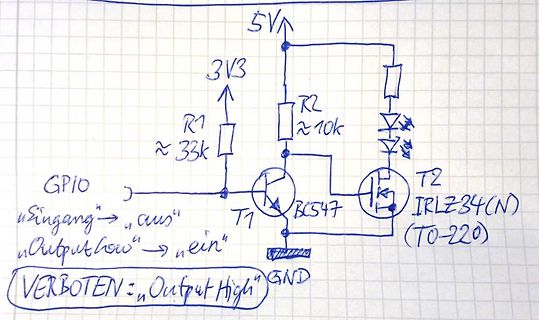 5V
3V3
R1
≈ 33k
R2
≈ 10k
GPIO
T1
BC547
T2
IRLZ34(N)
(TO-220)
"Eingang" → "aus"
"Output Low" → "ein"
GND
VERBOTEN: "Output High"